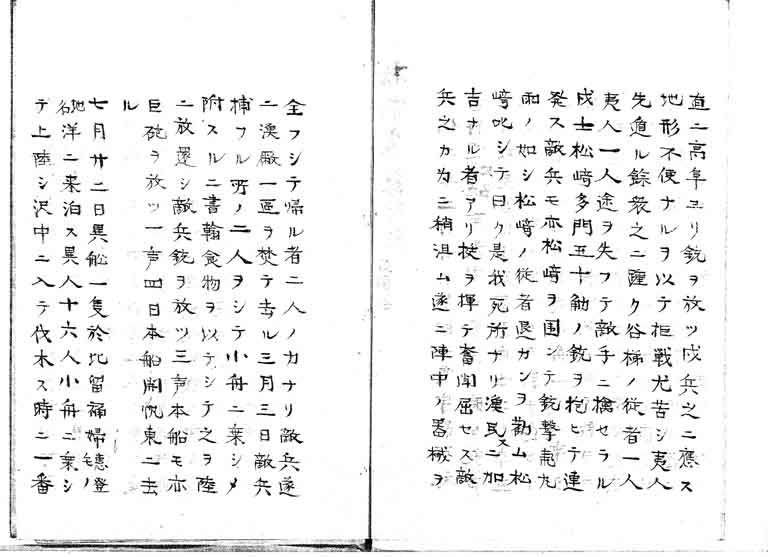 直ニ高阜ヨリ銃ヲ放ツ戍兵之ニ應ス
地形不便ナルヲ以テ拒戦尤苦シ夷人
先進ル餘衆之ニ踵ク谷梯ノ従者一人
夷人一人途ヲ失フテ敵手ニ擒セラル
戍士松﨑多門五十觔ノ銃ヲ抱ヒテ連
発ス敵兵モ亦松﨑ヲ国ンテ銃撃乱丸
雨ノ如シ松﨑ノ従者退ガンヲ勸ム松
﨑叱シテ曰ク是我死所ナリ漁民ニ加
吉ナル者アリ梃ヲ揮テ奮闘屈セス敵
兵之カ为ニ稍沮ム遂ニ陣中ノ器械ヲ
全フシテ帰ル者二人ノカナリ敵兵遂
ニ漁厰一區ヲ焚テ去ル三月三日敵兵
捕フル所ノ二人ヲシテ小舟ニ乗シメ
附スルニ書翰食物ヲ以テシテ之ヲ陸
ニ放還シ敵兵銃ヲ放ツ三声本船モ亦
巨砲ヲ放ツ一声四日本船開帆東ニ去
ル
七月廿二日異船一隻於比留福婦穂登
地名ノ洋ニ来泊ス異人十六人小舟ニ乗シ
テ上陸シ沢中ニ入テ伐木ス時ニ一番